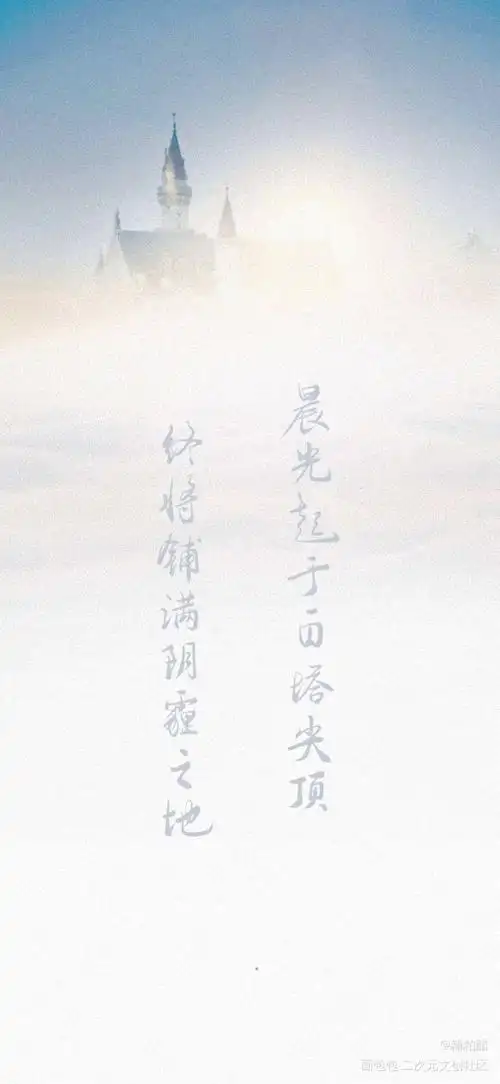 晨光起于白塔尖顶
终将铺满阴霾之地
面包包·二次元文创社区